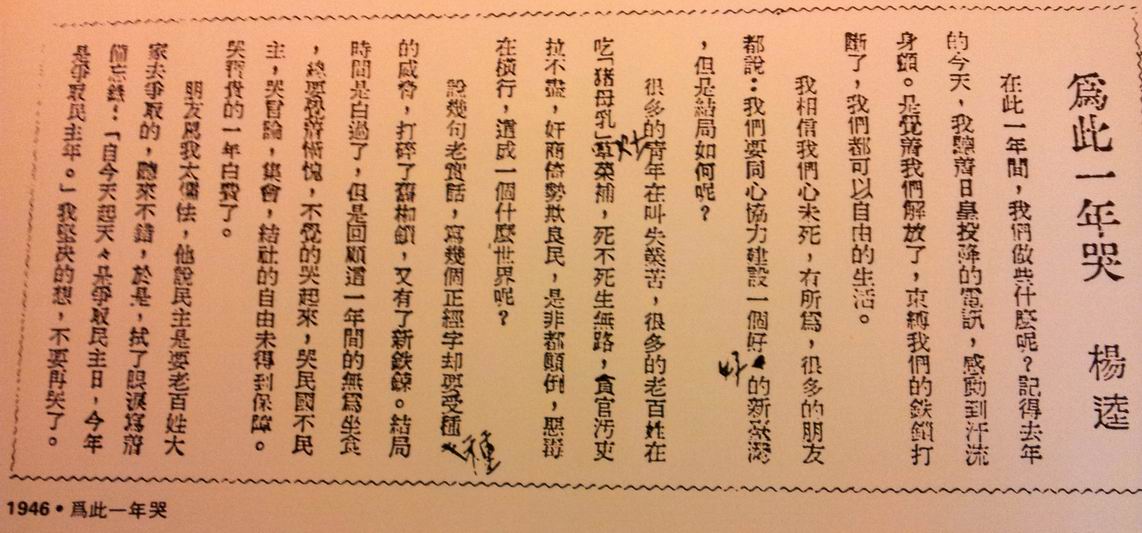 爲此一年哭　楊逵
在此一年間，我們做些什麼呢？記得去年
的今天，我聽着日皇投降的電訊，感動到汗流
身顫。是覺着我們解放了，束縛我們的鉄鎖打
斷了，我們都可以自由的生活。
我相信我們心未死，有所爲，很多的朋友
都說：我們要同心協力建設一個好好的新臺灣
，但是結局如何呢？
很多的青年在叫失業苦，很多的老百姓在
吃「猪母乳」草菜補，死不死生無路，貪官汚吏
拉不盡，奸商倚勢欺良民，是非都顛倒，惡毒
在橫行，這成一個什麼世界呢？
說幾句老實話，寫幾個正經字却要受種種
的威脅，打碎了舊枷鎖，又有了新鉄鍊。結局
時間是白過了，但是回顧這一年間的無爲坐食
，總要覺着慚愧，不覺的哭起來，哭民國不民
主，哭言論，集會，結社的自由未得到保障。
哭寶貴的一年白費了。
朋友罵我太懦怯，他說民主是要老百姓大
家去爭取的，聽來不錯，於是，拭了眼淚寫着
備忘錄：「自今天起天々是爭取民主日，今年
是爭取民主年。」我堅决的想，不要再哭了。
1946・爲此一年哭